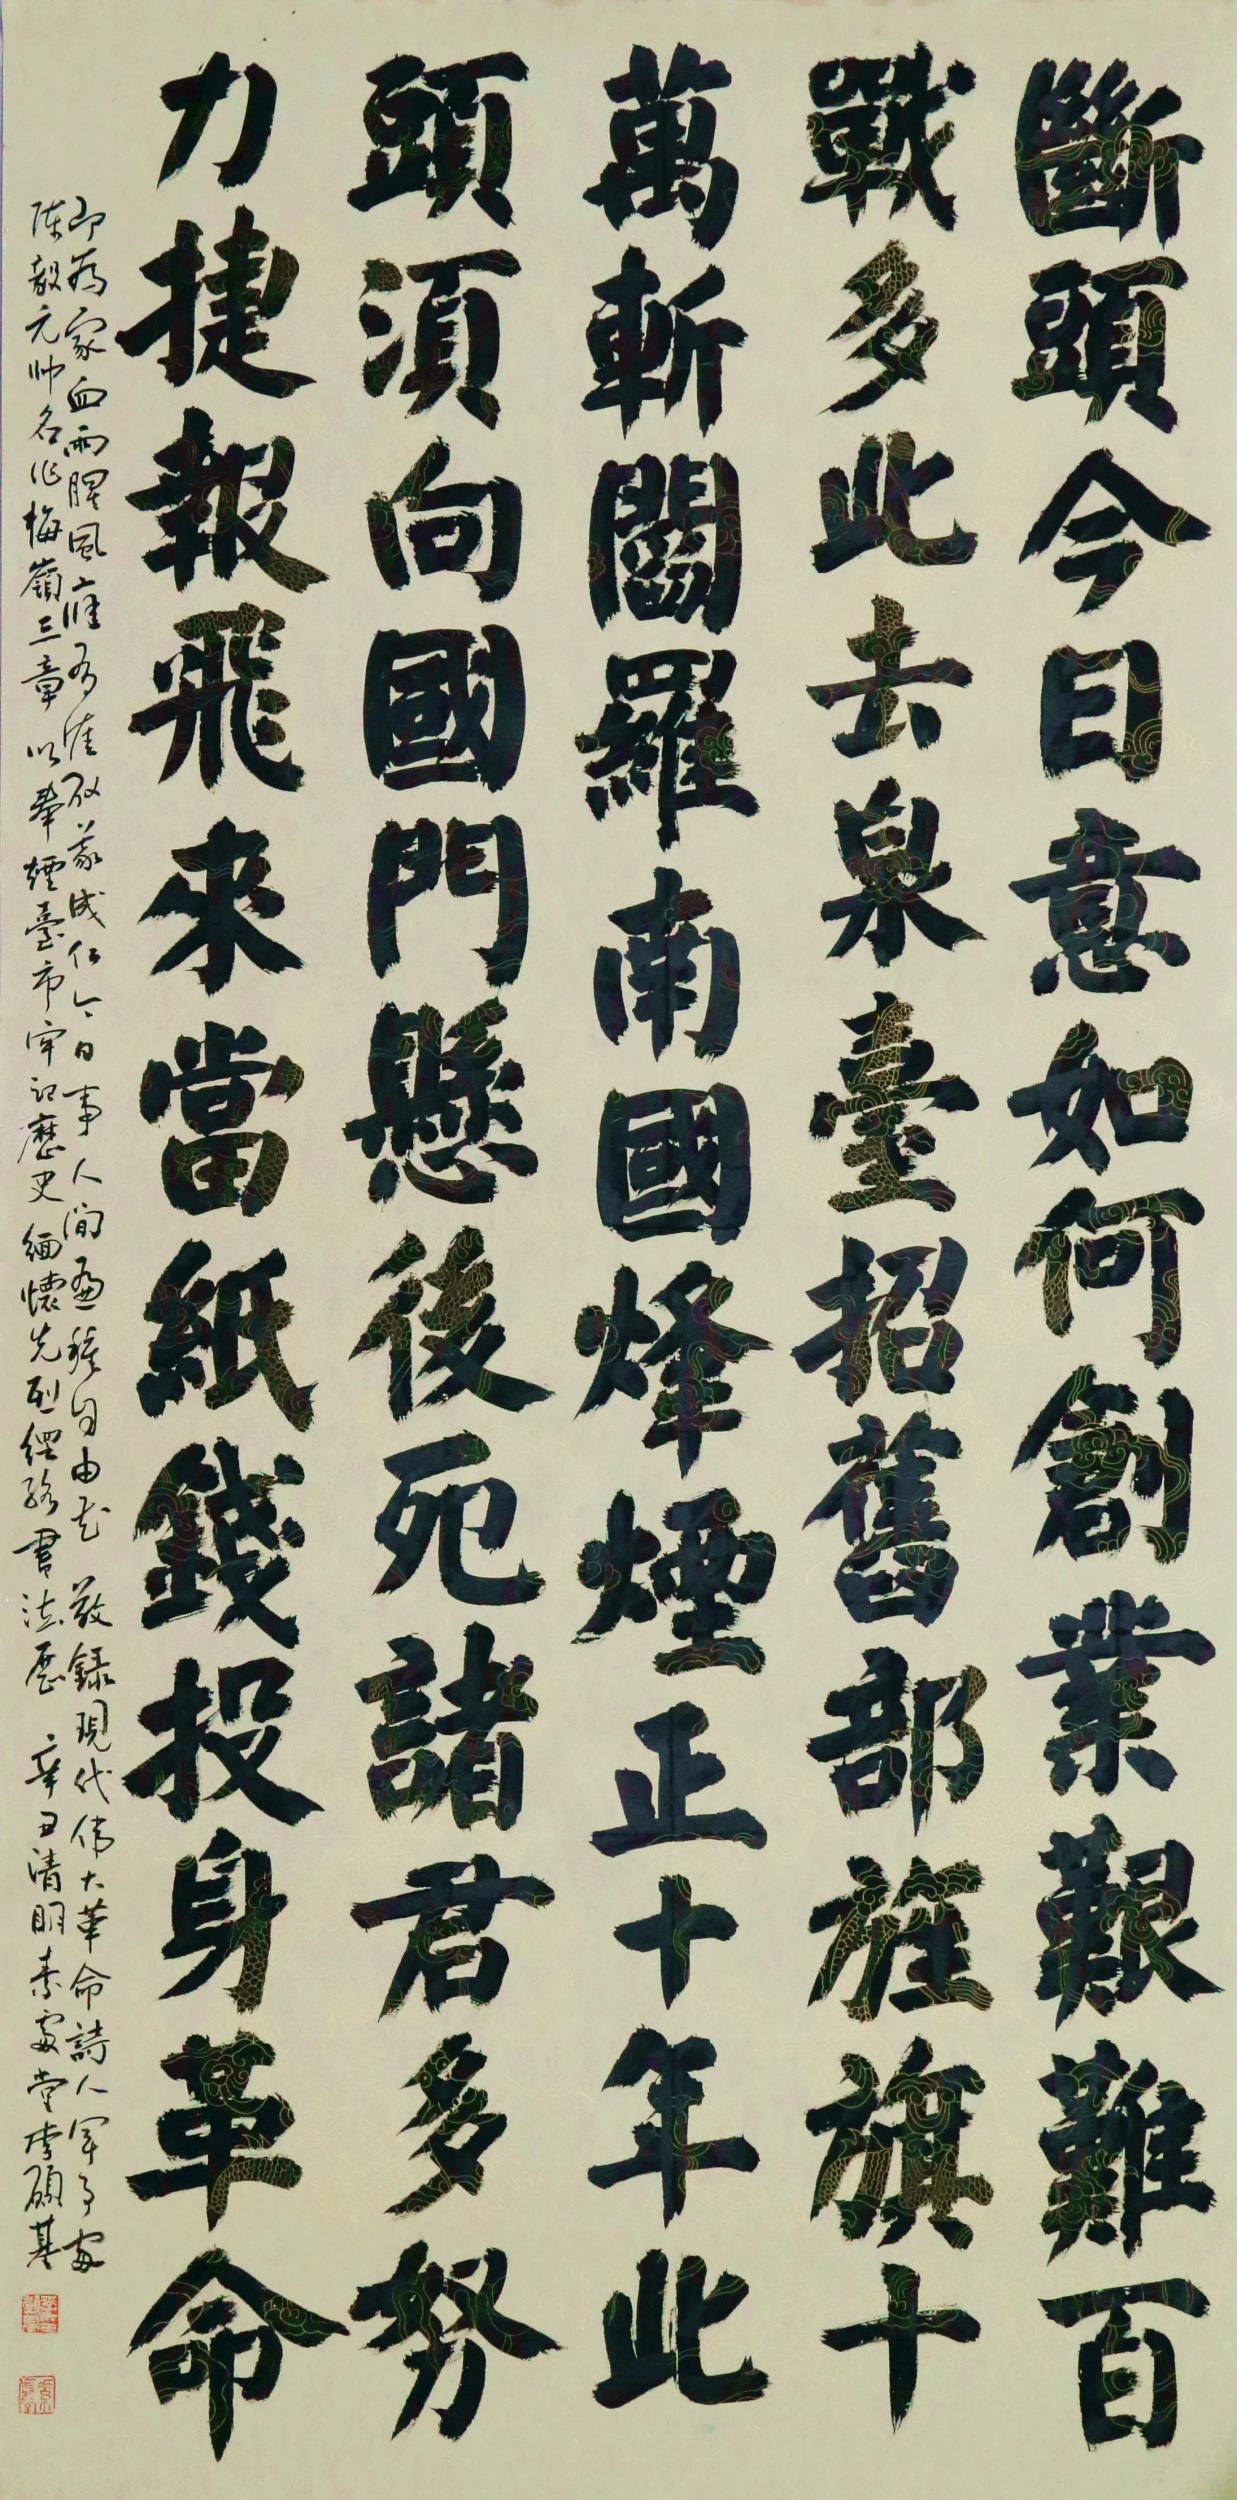 斷頭今日意如何創業艱難百
戰多此去泉臺招舊部旌旗十
萬斬閻羅南國烽煙正十年此
頭須向國門懸後死諸君多努
力捷報飛來當紙錢投身革命
即為家血雨腥風應有涯取義成仁今日事人間遍種自由花 敬録現代偉大革命詩人軍事家
陈毅元帅名作梅嶺三章以奉煙臺市牢記歷史緬懷先烈經路書法展 辛丑清明素處堂李碩基